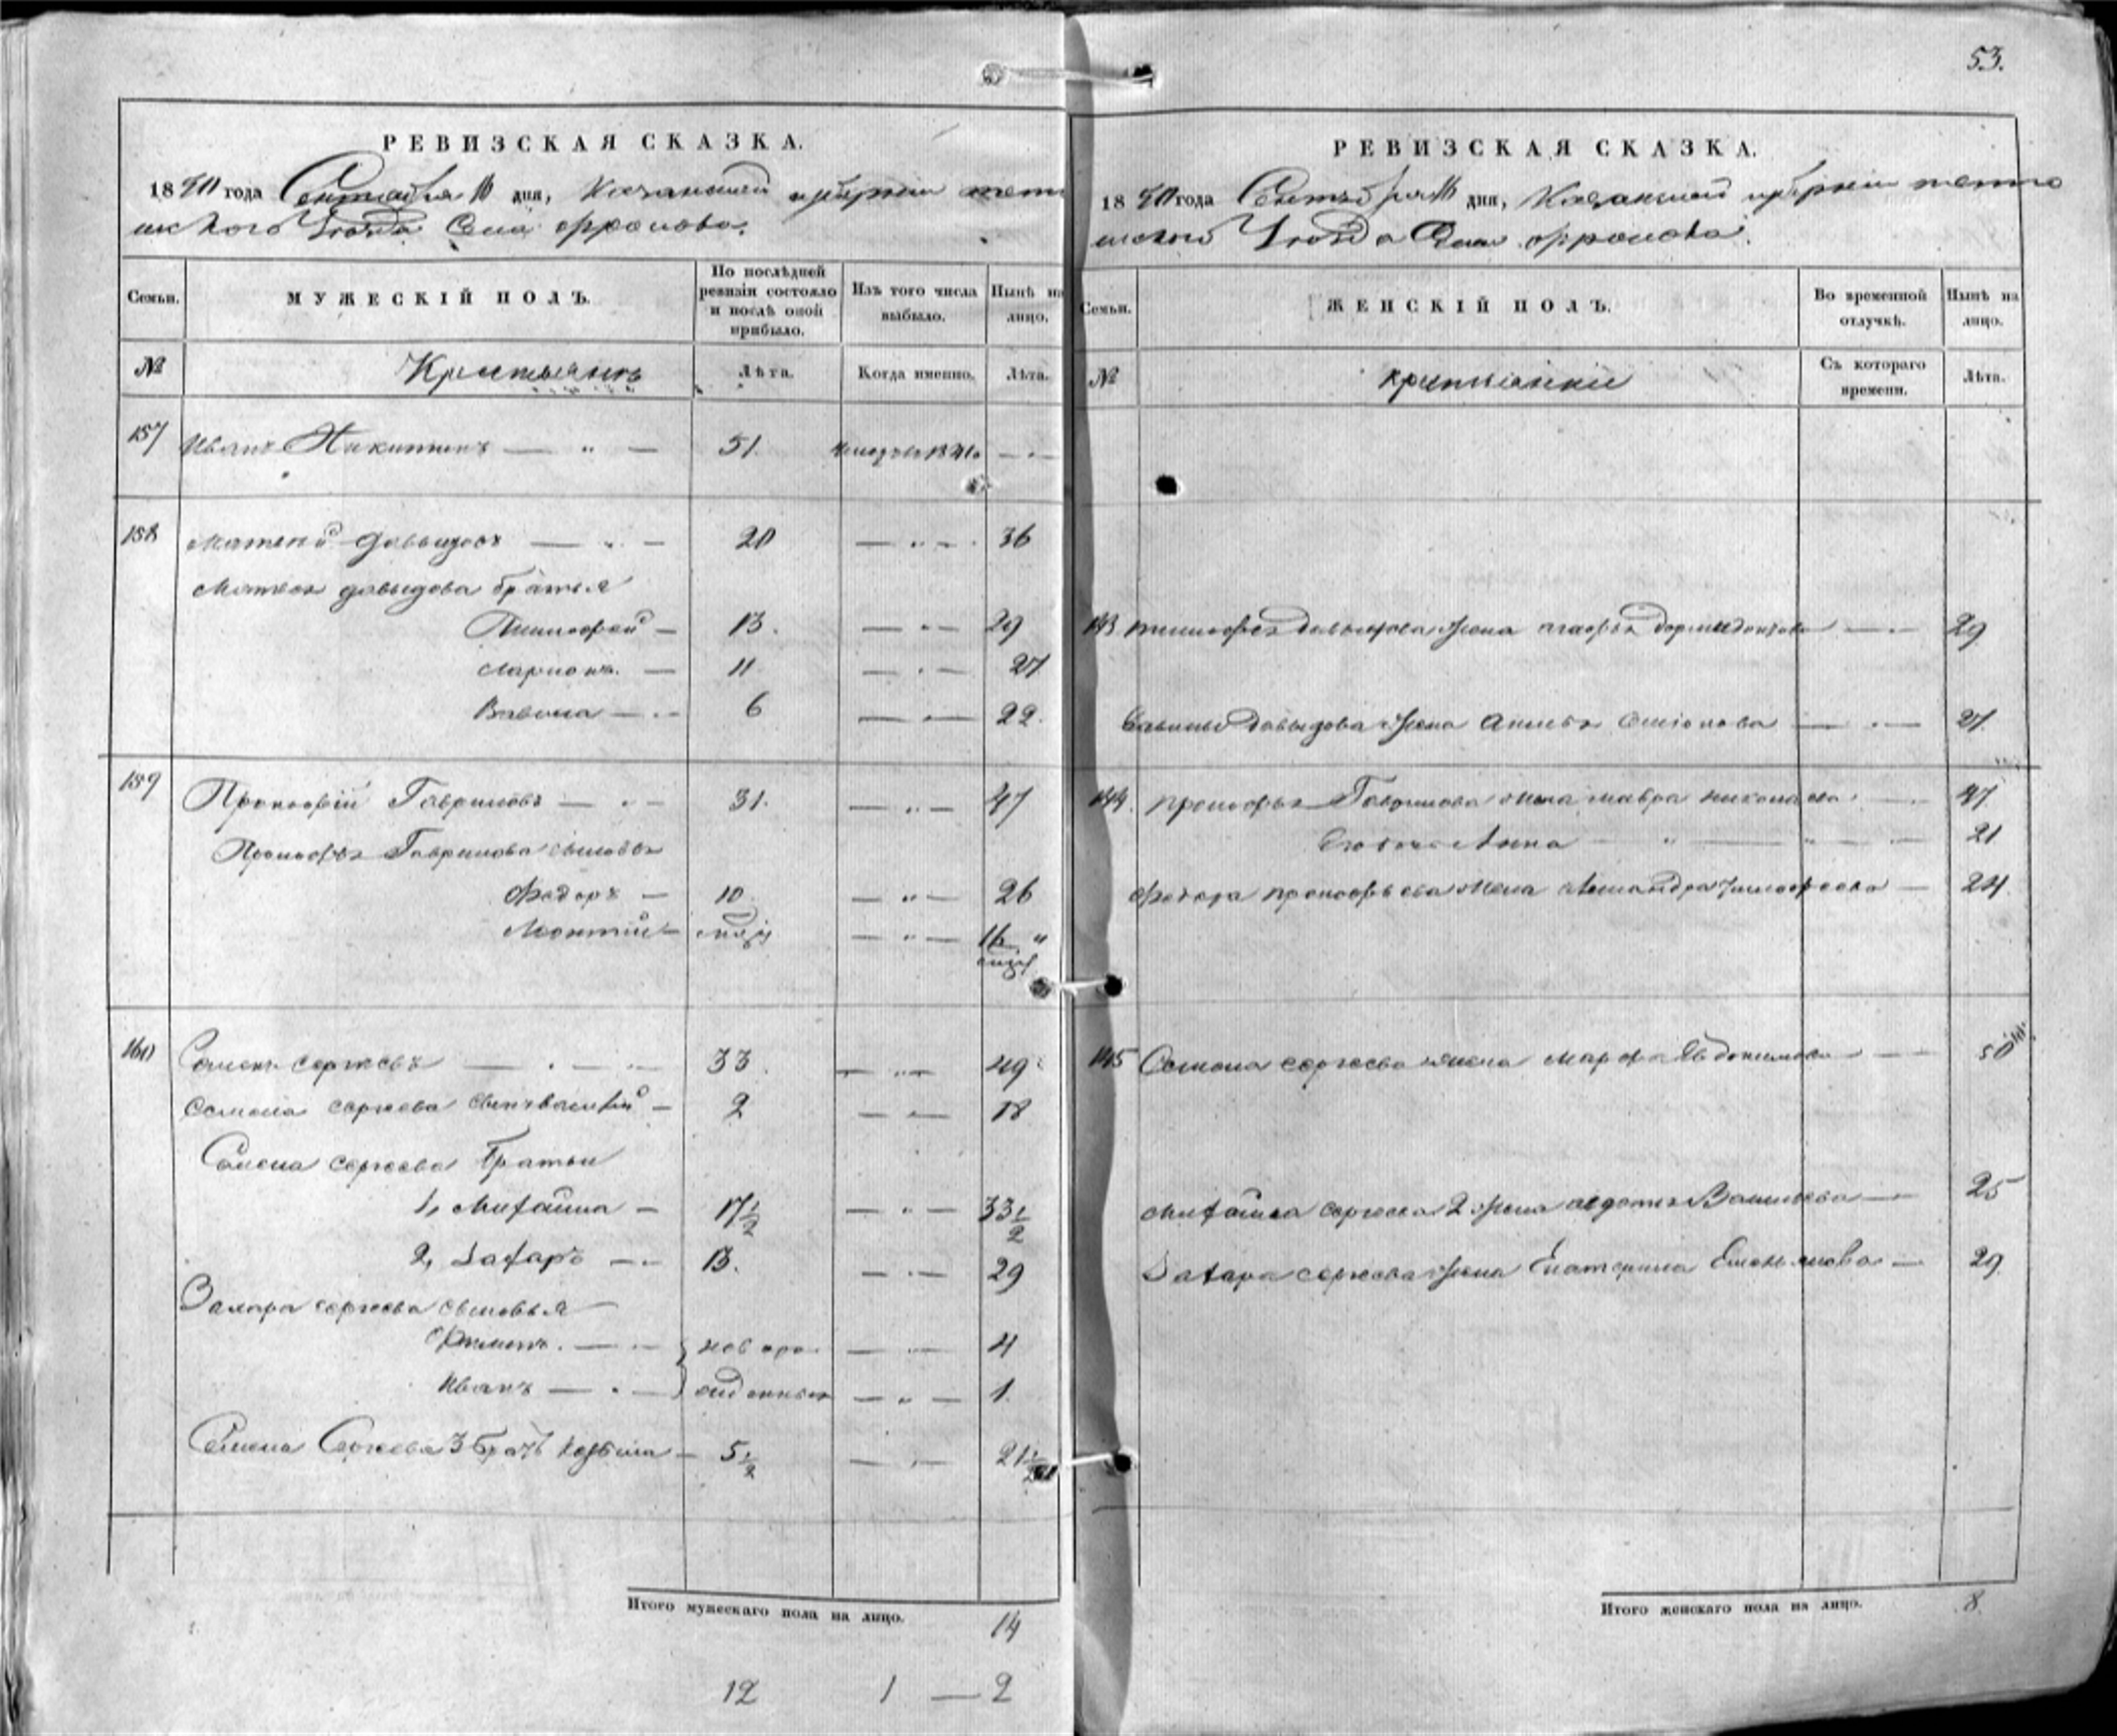 53.
РЕВИЗСКАЯ СКАЗКА.
1850 года Сентября 16 дня, Казанской губерніи тетю
шскаго Уезда Села
Семьи.
МУЖЕСКІЙ ПОЛЪ.
По послѣдней ревизіи состояло и послѣ оной прибыло.
Изъ того числа выбыло.
Нынѣ на лицо.
№
Крестьянъ
Лѣта.
Когда именно.
Лѣта.
157 Иванъ Никитинъ — " — 51. — " —
158 Матвей Давыдовъ — " — 20 — " — 36
Матвея давыдова братья
Тимофей — 13. — " — 29
Ларионъ — 11 — " — 27
Вавила — " — 6 — " — 22.
159 Прокофій Гавриловъ — " — 31. — " — 47
Прокофья Гаврилова сыновья
Федоръ — 10 — " — 26
Леонтій — — " — 16 "
160 Семенъ Сергеевъ — " — 33. — " — 49
Семена Сергеева сынъ Василий — 2 — " — 18
Семена Сергеева Братьи
1, Михайла — 17 1/2 — " — 33 1/2
2, Захаръ — " — 13. — " — 29
Захара сергеева сыновья
Филипъ. — " — новоро — " — 4
Иванъ — " — жденныя — " — 1.
Семена Сергеева 3 братъ Козьма — 5 1/2 — " — 21 1/2
Итого мужескаго пола на лицо. 14
12 1 — 2
РЕВИЗСКАЯ СКАЗКА.
1850 года Сентября 16 дня, Казанской губерніи тетю
шскаго Уезда Села
Семьи.
ЖЕНСКІЙ ПОЛЪ.
Во временной отлучкѣ.
Нынѣ на лицо.
№
крестьянки
Съ котораго времени.
Лѣта.
143 тимофея Давыдова жена агафья дормидонтова — " — 29
Вавилы Давыдова жена — " — 27.
144. прокофья Гаврилова жена мавра николаева — " — 47
Его дочь Анна — " — " — 21
Федора прокофьева жена Александра тимофеева — 24
145 Семена сергеева жена марфа Евдокимова — " — 50
Михайла сергеева 2 жена авдотья Васильева — " — 25
Захара сергеева жена Екатерина Емельянова — 29.
Итого женскаго пола на лицо. 8